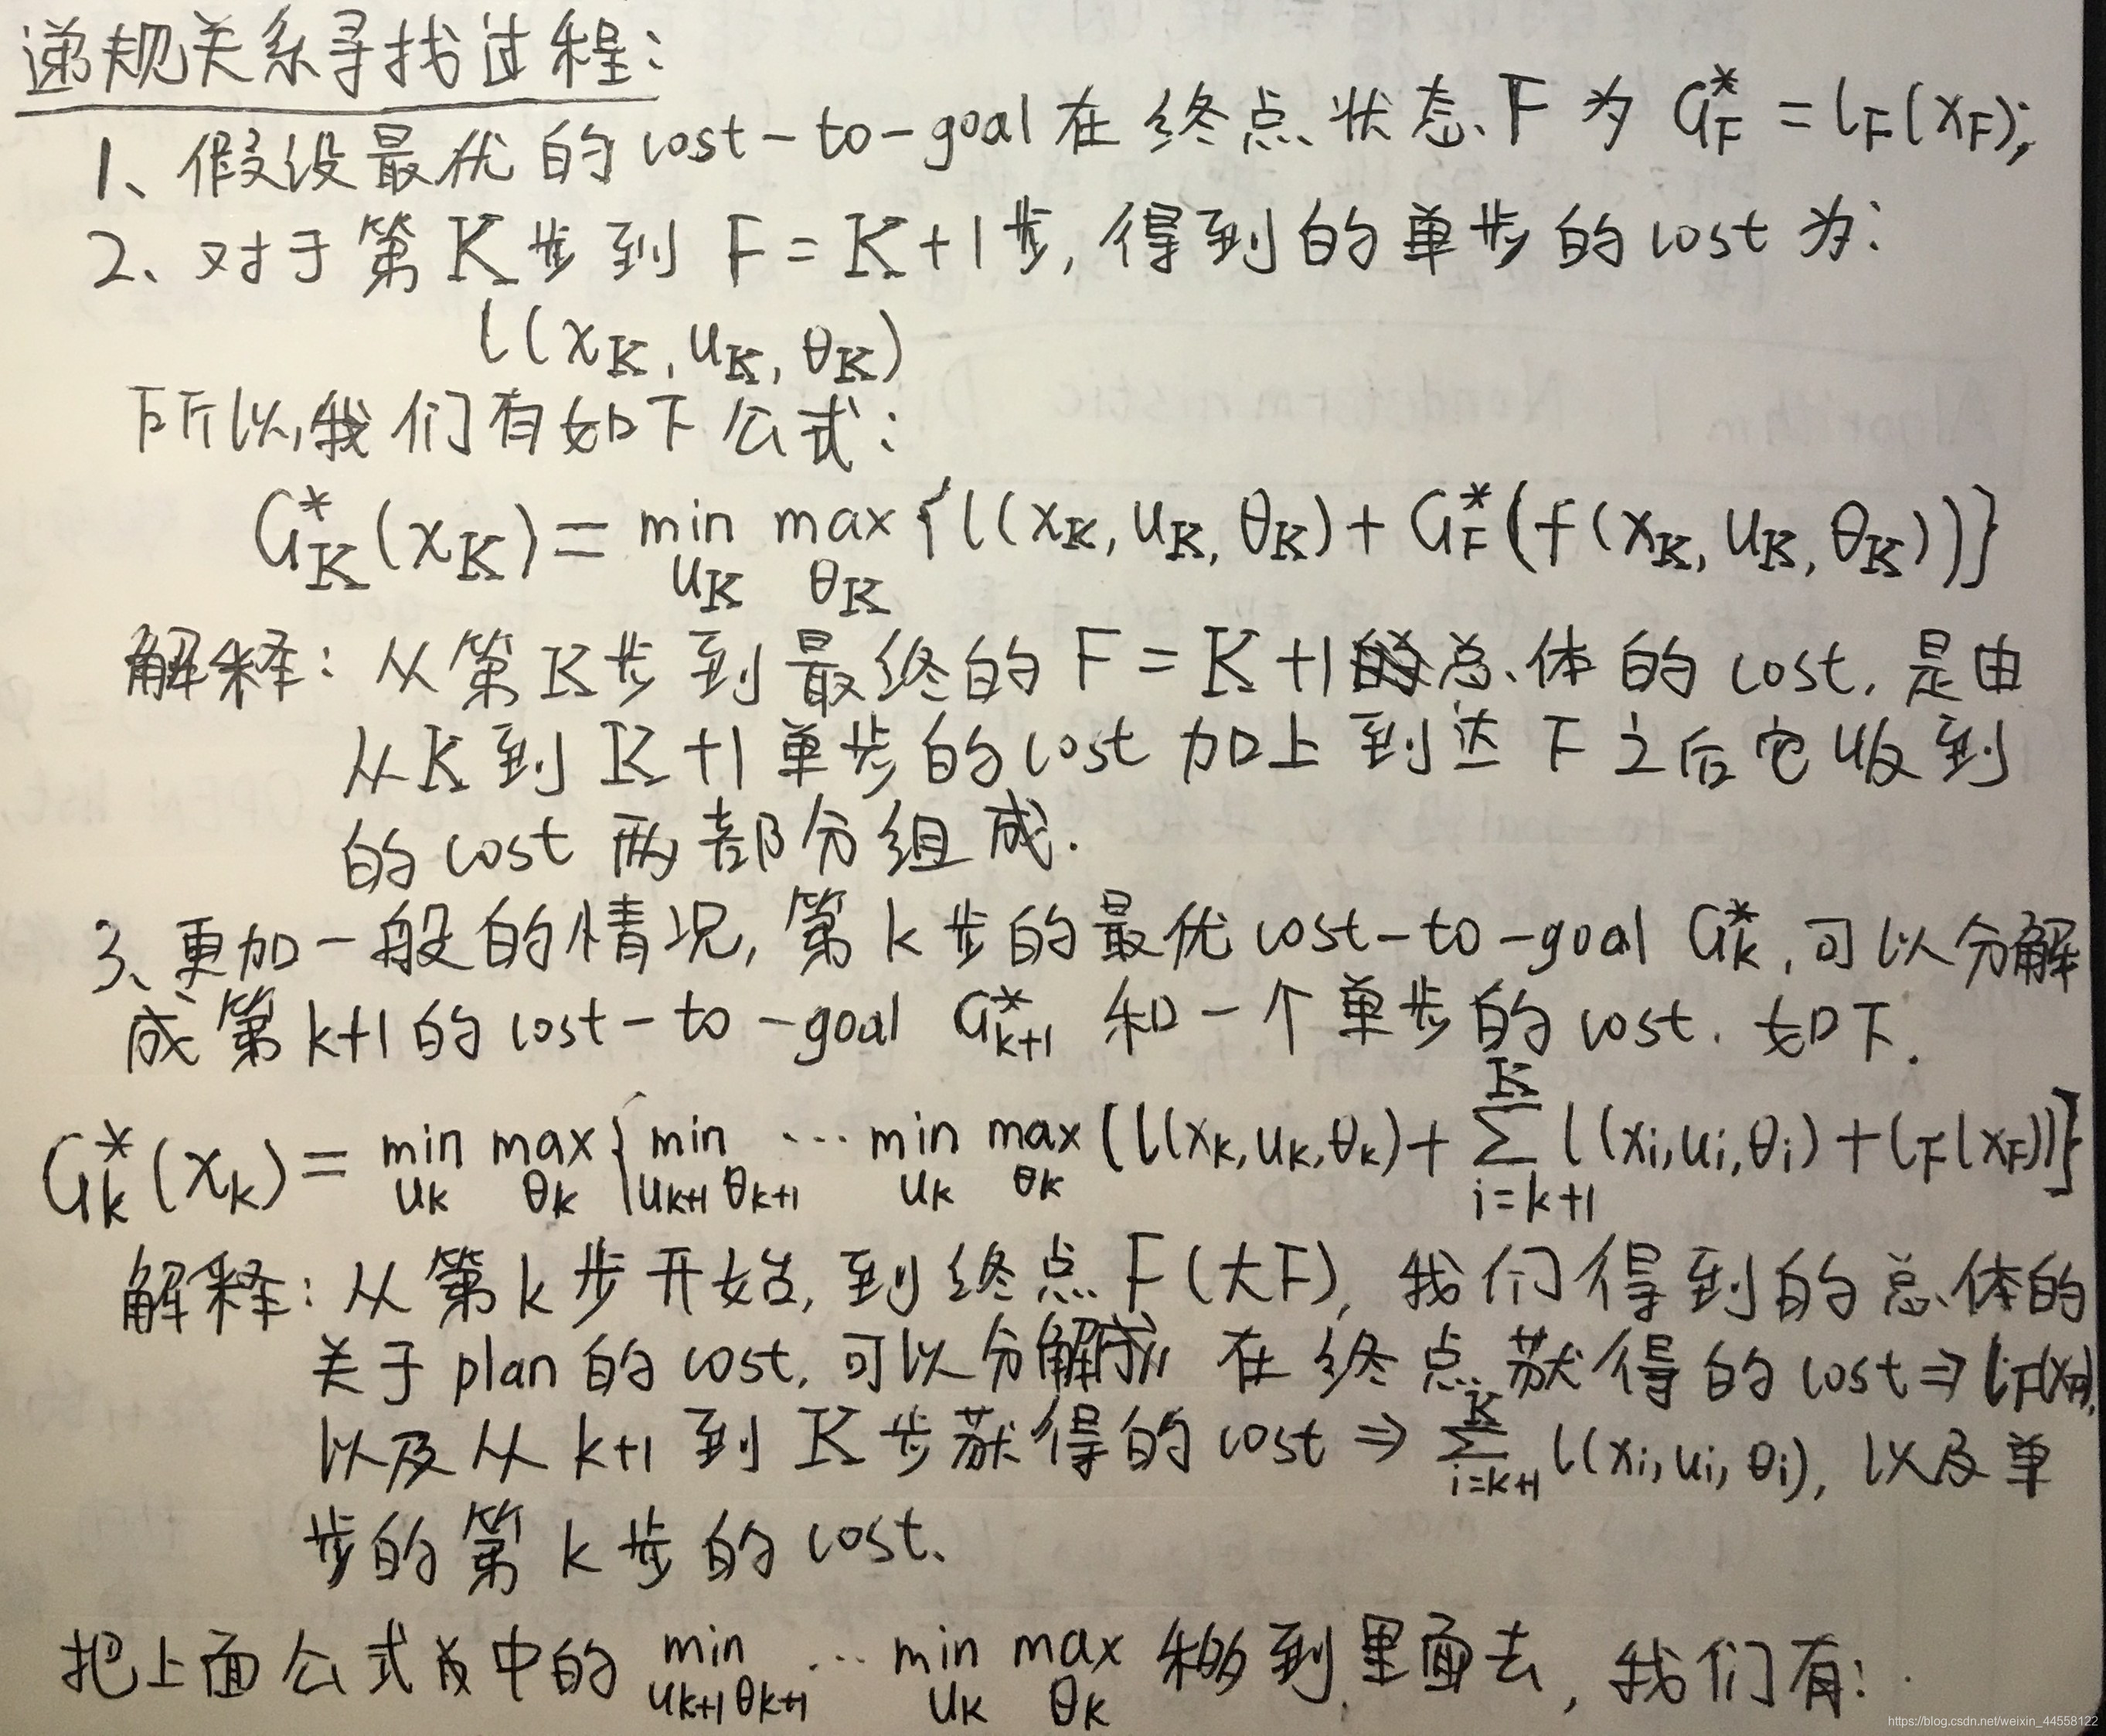 递规关系寻找过程:
1、假设最优的 cost-to-goal 在终点状态 F 为 G*_F = l_F(x_F);
2、对于第 K 步到 F = K+1 步, 得到的单步的 cost 为:
l(x_K, u_K, θ_K)
所以,我们有如下公式:
G*_K(x_K) = min_{u_K} max_{θ_K} {l(x_K, u_K, θ_K) + G*_F(f(x_K, u_K, θ_K))}
解释: 从第 K 步到最终的 F = K+1 总体的 cost, 是由
从 K 到 K+1 单步的 cost 加上到达 F 之后它收到
的 cost 两部分组成.
3、更加一般的情况, 第 k 步的最优 cost-to-goal G*_k, 可以分解
成第 k+1 的 cost-to-goal G*_{k+1} 和一个单步的 cost. 如下.
G*_k(x_k) = min_{u_k} max_{θ_k} {min_{u_{k+1}} _{θ_{k+1}} ... min_{u_K} max_{θ_K} (l(x_k, u_k, θ_k) + ∑_{i=k+1}^{K} l(x_i, u_i, θ_i) + l_F(x_F))}
解释: 从第 k 步开始, 到终点 F (大F), 我们得到的总体的
关于 plan 的 cost, 可以分解成 在终点获得的 cost ⇒ l_F(x_F),
以及从 k+1 到 K 步获得的 cost ⇒ ∑_{i=k+1}^{K} l(x_i, u_i, θ_i), 以及单
步的第 k 步的 cost、
把上面公式中的 min_{u_{k+1}} _{θ_{k+1}} ... min_{u_K} max_{θ_K} 移到里面去, 我们有:
https://blog.csdn.net/weixin_44558122